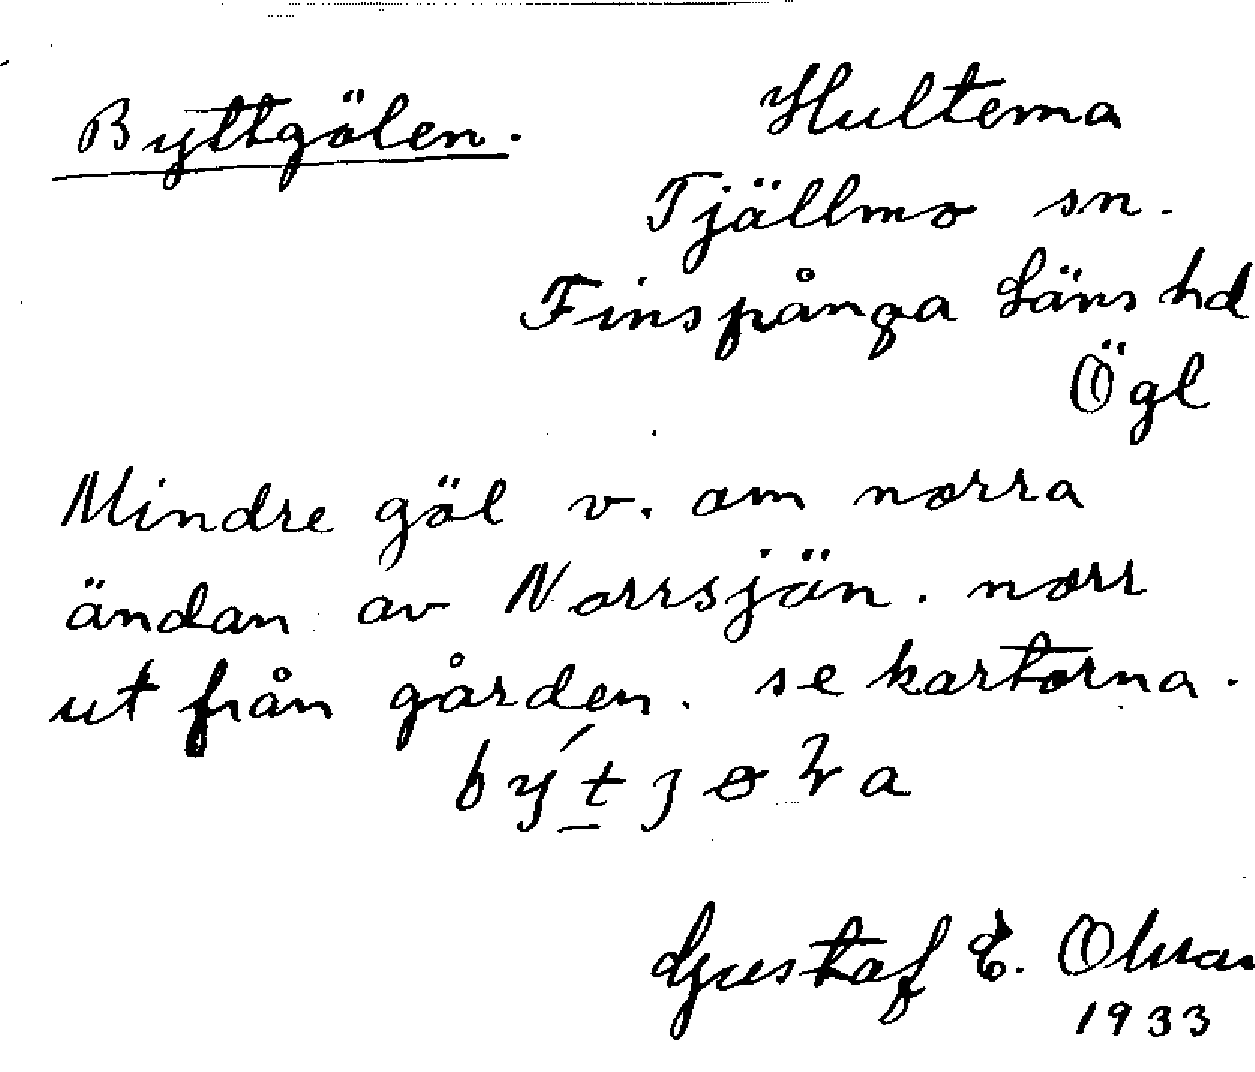 Byttgölen.
Hultema
Tjällmo sn.
Finspånga Läns hd
Ögl
Mindre göl v. om norra
ändan av Norrsjön. norr
ut från gården. se kartorna.
Gustaf E.
1933